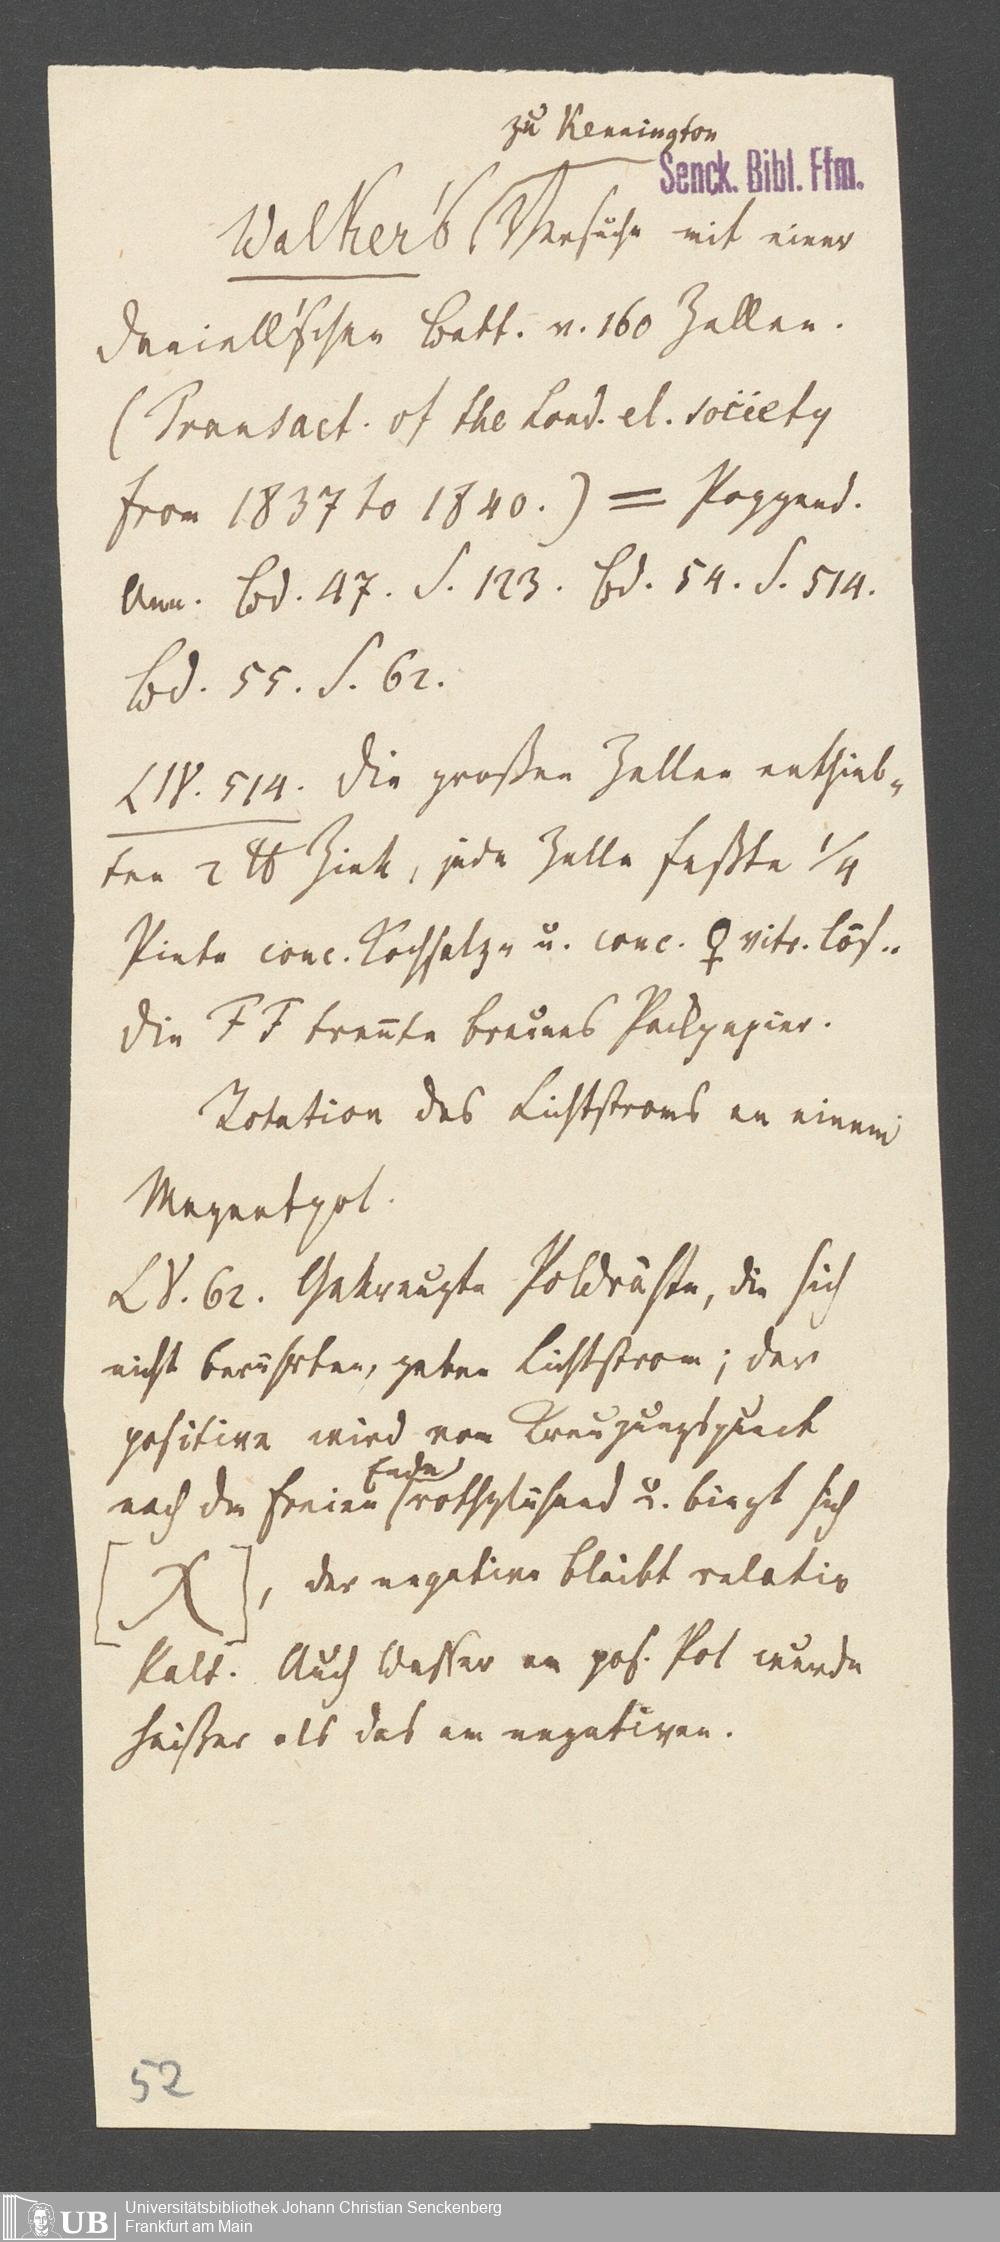 zu Kennington
Senck. Bibl. Ffm.
Walker's Versuche mit einer
Daniell'schen Batt. v. 160 Zellen.
(Transact. of the Lond. el. society
from 1837 to 1840.) = Poggend.
Ann. Bd. 47. S. 123. Bd. 54. S. 514.
Bd. 55. S. 62.
LIV. 514. Die großen Zellen enthiel-
ten 2 ℔ Zink, jede Zelle faßte 1/4
Pinte conc. Kochsalz- u. conc. ♀ vitr. lös..
Die FF trennte braunes Packpapier.
Rotation des Lichtstroms an einem
Magnetpol.
LV. 62. Gekreuzte Poldräthe, die sich
nicht berührten, gaben Lichtstrom; der
positive wird vom Kreuzungspunct
nach dem freien Ende rothglühend u. biegt sich
[ ], der negative bleibt relativ
kalt. Auch Wasser am pos. Pol wurde
heißer als das am negativen.
52
UB
Universitätsbibliothek Johann Christian Senckenberg
Frankfurt am Main